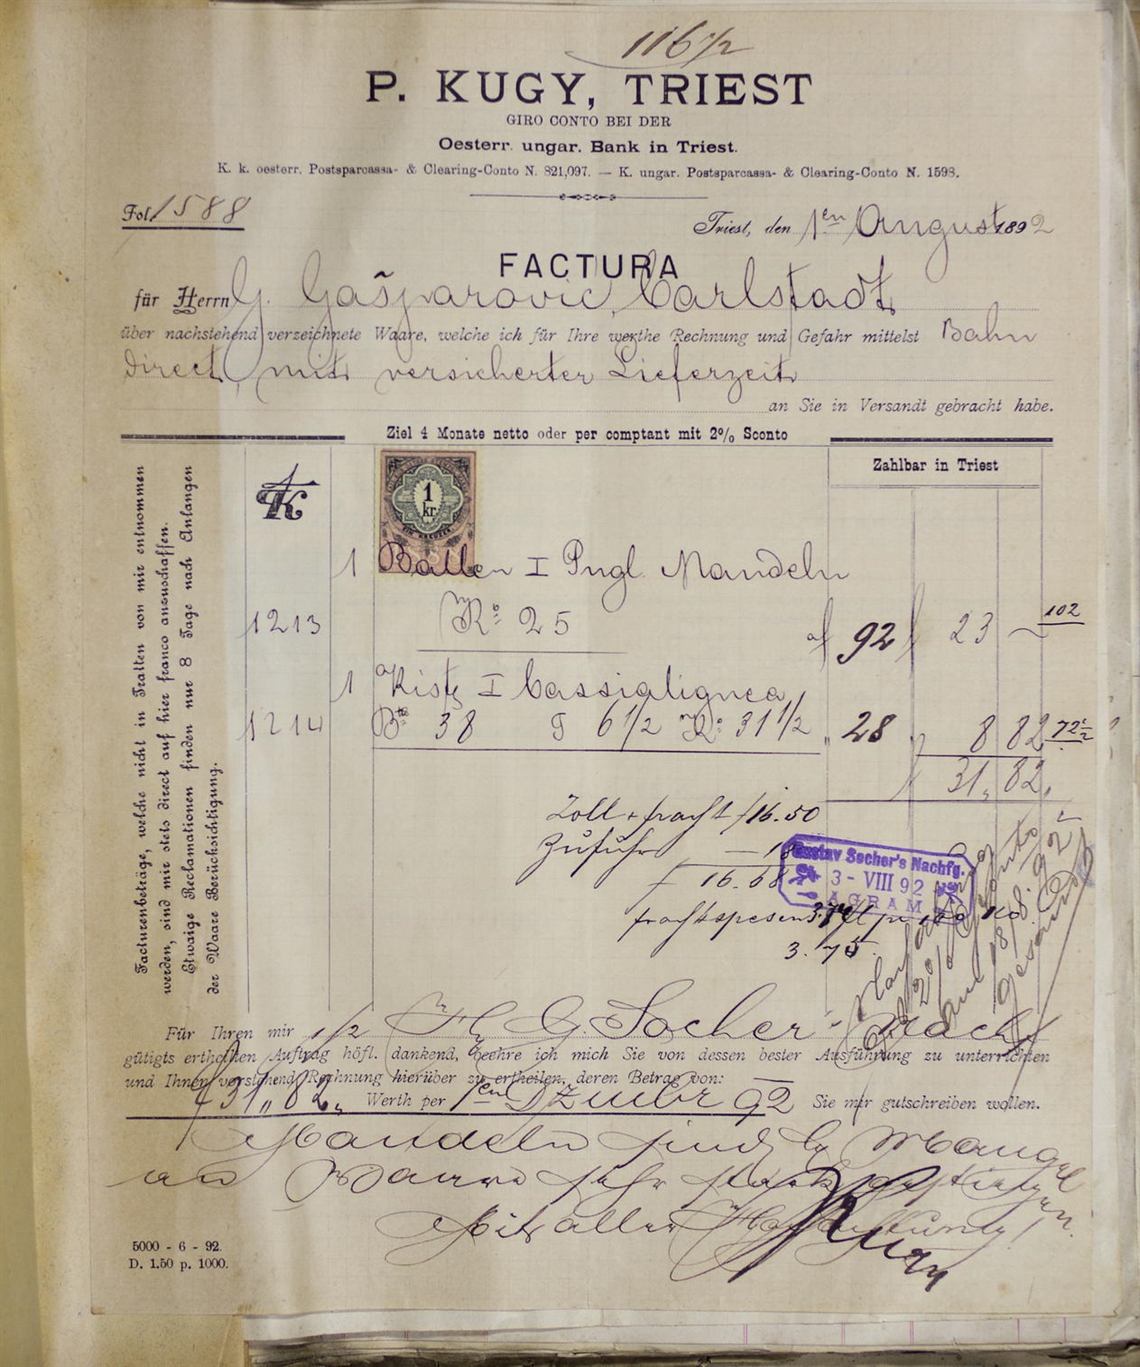 116 1/2
P. KUGY, TRIEST
GIRO CONTO BEI DER
Oesterr. ungar. Bank in Triest.
K. k. oesterr. Postsparcassa- & Clearing-Conto N. 821,097. — K. ungar. Postsparcassa- & Clearing-Conto N. 1598.
Fol. 1588
Triest, den 1en August 1892
FACTURA
für Herrn G. Gašparovic, Carlstadt
über nachstehend verzeichnete Waare, welche ich für Ihre werthe Rechnung und Gefahr mittelst Bahn
direct, mit versicherter Lieferzeit
an Sie in Versandt gebracht habe.
Ziel 4 Monate netto oder per comptant mit 2% Sconto
Zahlbar in Triest
Facturenbeträge, welche nicht in Tratten von mir entnommen
werden, sind mir stets direct auf hier franco anzuschaffen.
Etwaige Reclamationen finden nur 8 Tage nach Anlangen
der Waare Berücksichtigung.
K
1
kr.
1 Ballen I Pugl. Mandeln
1213 Ko 25 92 23 — 102
1 Kiste I Cassialignea
1214 Bto 38 T 6 1/2 Ko 31 1/2 28 8 82 72 1/2
31,, 82
Zoll + fracht f 16.50
Zufuhr — 18
f 16.68
Gustav Socher's Nachfg.
3 - VIII 92
AGRAM
frachtspesen
3.75
Für Ihren mir 1/2 G. Socher Nachf
gütigts ertheilten Auftrag höfl. dankend, beehre ich mich Sie von dessen bester Ausführung zu unterrichten
und Ihnen vorstehend Rechnung hierüber zu ertheilen, deren Betrag von:
f 31,, 82,, Werth per 1en Dzember 92 Sie mir gutschreiben wollen.
Mandeln sind Mangel
an Waare sehr stark gestiegen.
Mit aller Hochachtung
Kugy
5000 - 6 - 92.
D. 1.50 p. 1000.